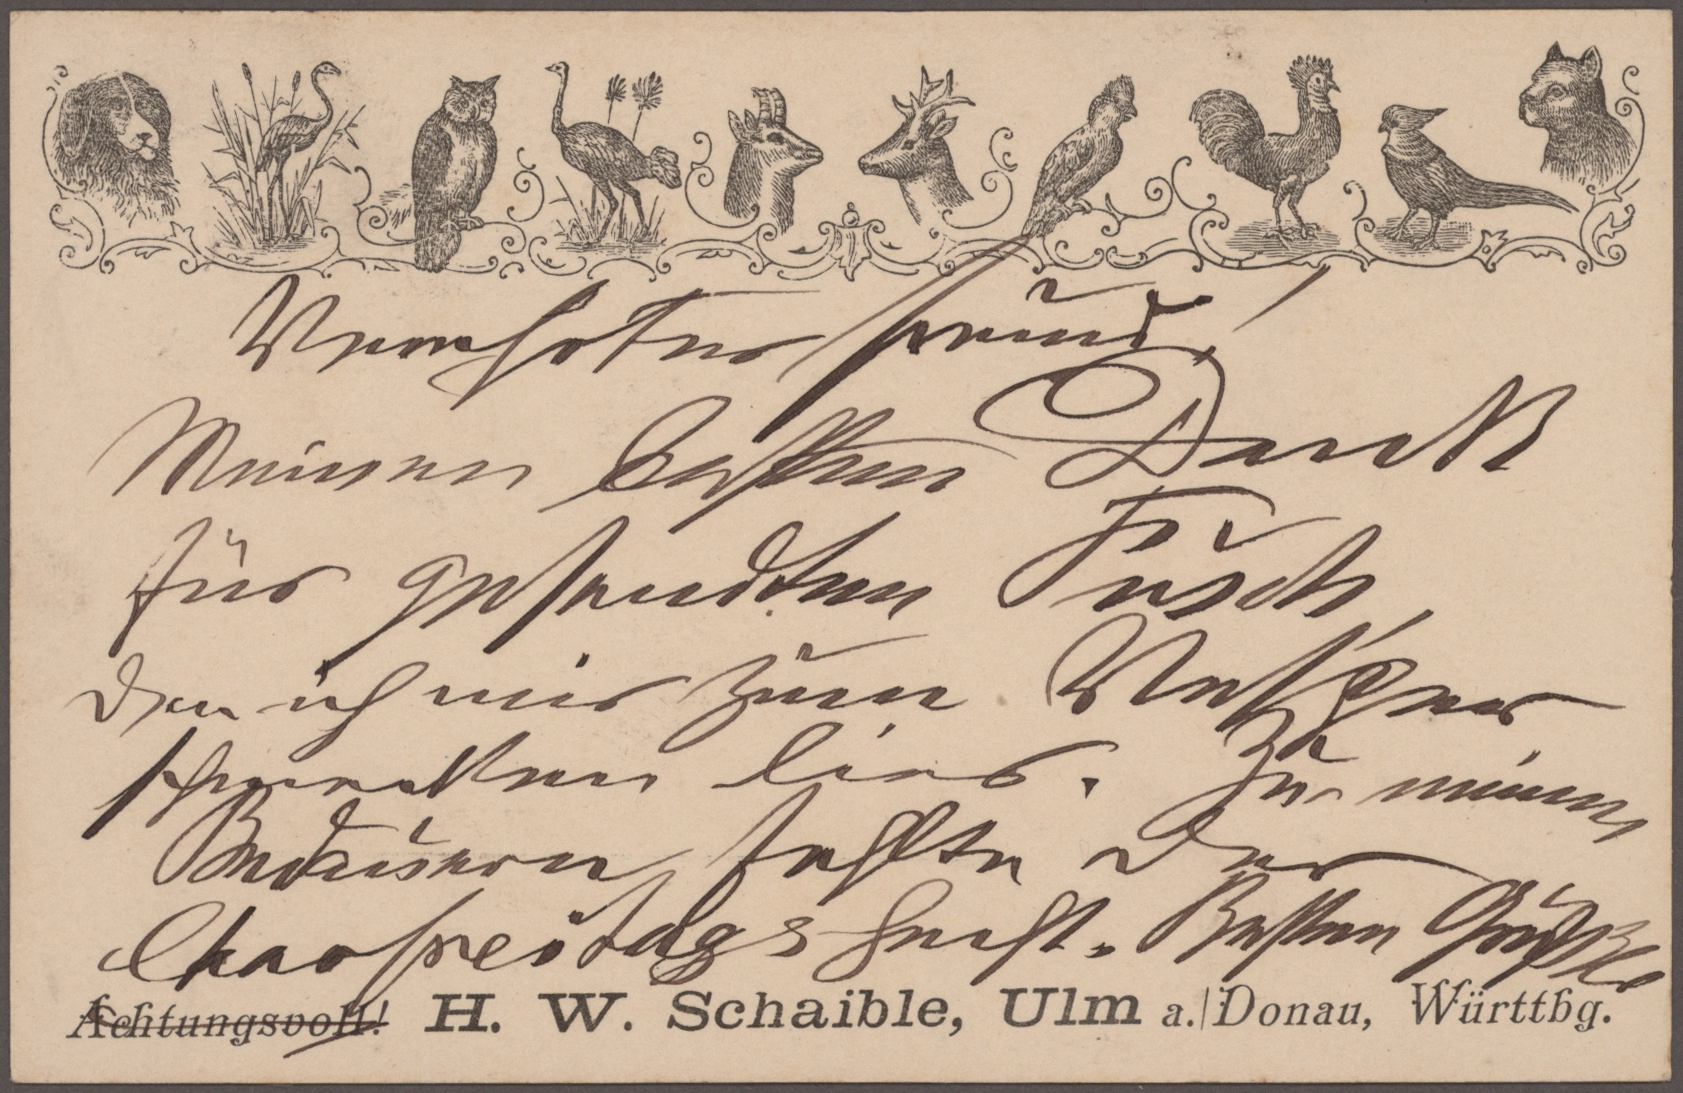 Verehrter Freund!
Meinen besten Dank
für gesandten Fisch,
den ich mir zum Vesper
schmecken lies. Zu meinem
Bedauern fehlte der
Charfreitagshecht. Besten Grüße
Achtungsvoll! H. W. Schaible, Ulm a./Donau, Württbg.